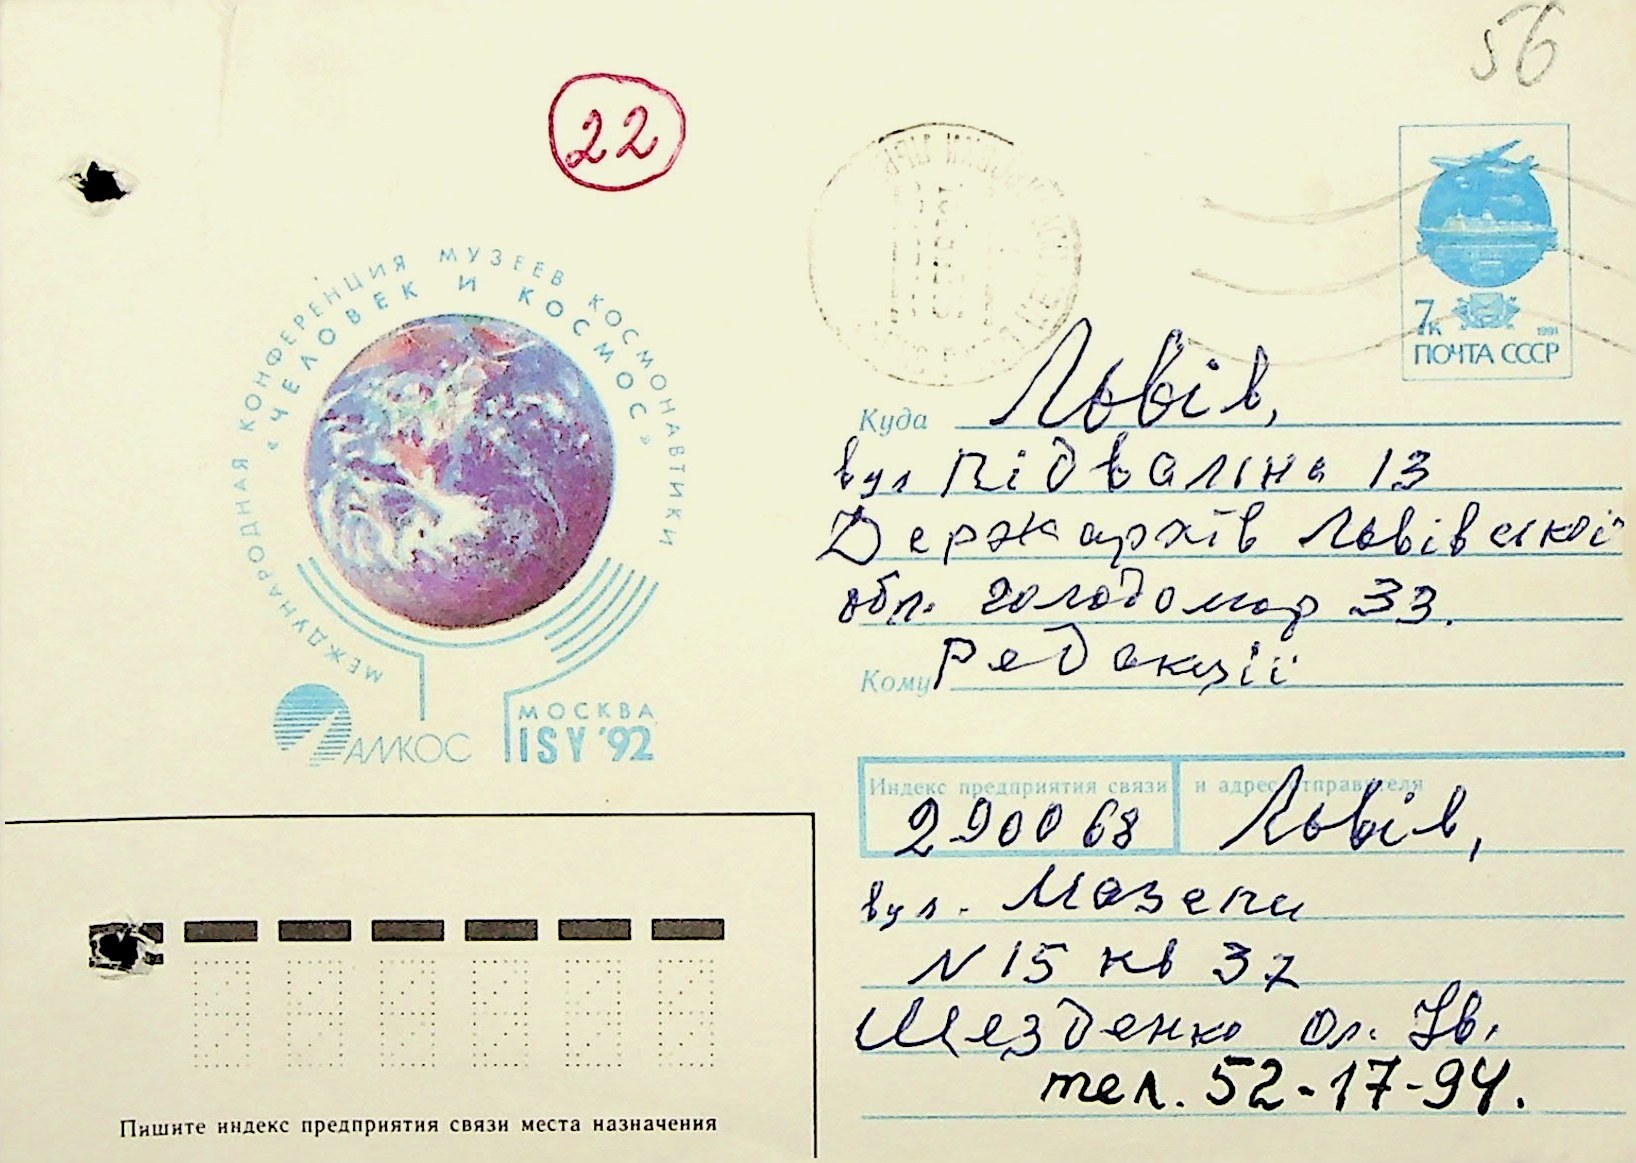 56
22
МЕЖДУНАРОДНАЯ КОНФЕРЕНЦИЯ МУЗЕЕВ КОСМОНАВТИКИ
«ЧЕЛОВЕК И КОСМОС»
АМКОС
МОСКВА
ISY '92
7к
1991
ПОЧТА СССР
Куда Львів,
вул Підвальна 13
Держархів Львівської
обл. голодомор 33.
Кому Редакції
Индекс предприятия связи и адрес отправителя
290068 Львів,
вул. Мазепи
N 15 кв 37
Ол. Ів.
тел. 52-17-94.
Пишите индекс предприятия связи места назначения